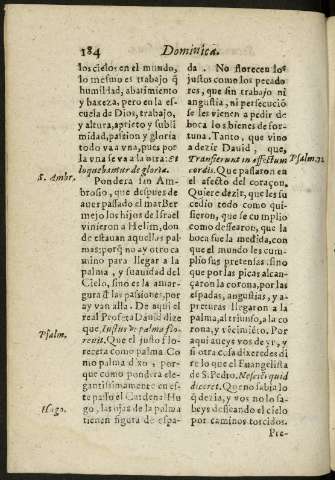 184
Dominica.
los cielos en el mundo,
lo mesmo es trabajo q̃
humildad, abatimiento
y baxeza, pero en la es-
cuela de Dios, trabajo,
y altura, aprieto y subli
midad, passion y gloria
todo va a vna, pues por
la vna se va a la otra: Et
loquebantur de gloria.
S. Ambr.
Pondera san Am-
brosio, que despues de
auer passado el mar Ber
mejo los hijos de Israel
vinieron a Helim, don
de estauan aquellos pal
mas; porq̃ no ay otro ca
mino para llegar a la
palma, y suauidad del
Cielo, sino es la amar-
gura d̃ las passiones, por
ay van alla. De aqui el
real Profeta Dauid dize
que, Iustus vt palma flo-
Psalm.
rebit. Que el justo flo-
receta como palma Co
mo palma dixo, por-
que como pondera ele-
gantissimamente en es-
te passo el Cardenal Hu
Hugo.
go, las ojas de la palma
tienen figura de espa-
da. No florecen los
justos como los pecado
res, que sin trabajo ni
angustia, ni persecucio
se les vienen a pedir de
boca los bienes de for-
tuna. Tanto, que vino
a dezir Dauid, que,
Transierunt in affectum
Psalm. 72
cordis. Que passaron en
el afecto del coraçon.
Quiere dezir, que les su
cedio todo como qui-
sieron, que se cumplio
como dessearon, que la
boca fue la medida, con
que el mundo les cum-
plio sus pretensas. sino
que por las picas alcan-
çaron la corona, por las
espadas, angustias, y a-
preturas llegaron a la
palma, al triunfo, a la co
rona, y vẽcimiẽto. Por
aqui aueys vos de yr, y
si otra cosa dixeredes di
re lo que el Euangelista
de S. Pedro. Nesciẽs quid
diceret. Que no sabia lo
q̃ dezia, y vos no lo sa-
beys desseando el cielo
por caminos torcidos.
Pre-